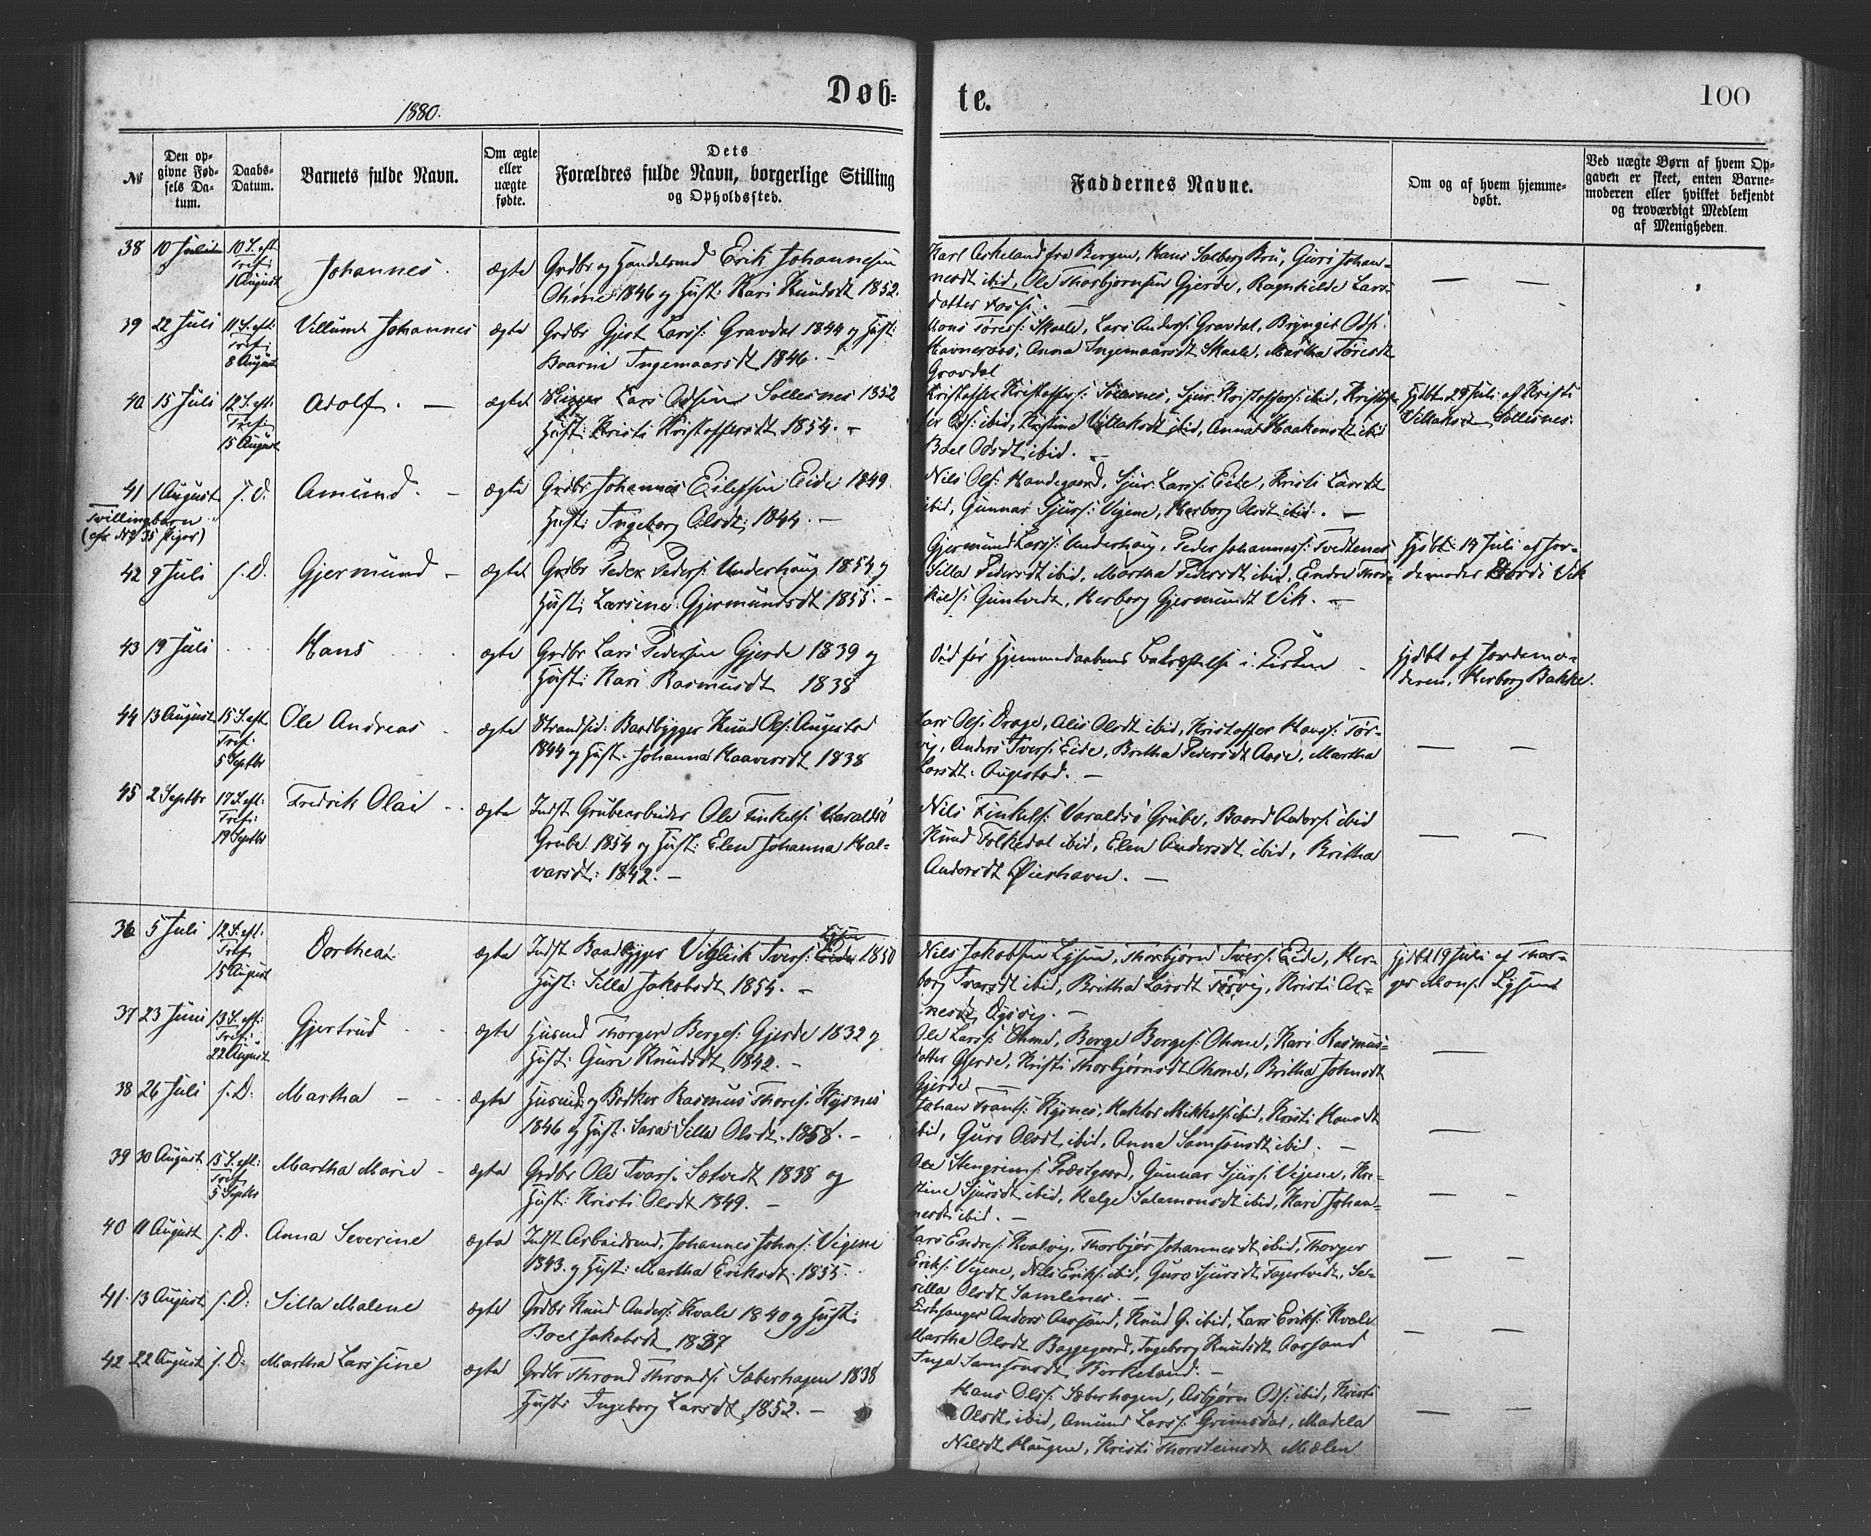 1880.
Døb-
te.
100
No
Den op-
givne Fød-
sels Da-
tum.
Daabs-
Datum.
Barnets fulde Navn.
Om ægte
eller
uægte
fødte.
Dets
Forældres fulde Navn, borgerlige Stilling
og Opholdssted.
Faddernes Navne.
Om og af hvem hjemme-
døbt.
Ved uægte Børn af hvem Op-
gaven er skeet, enten Barne-
moderen eller hvilket bekjendt
og troværdigt Medlem
af Menigheden.
38 10 Juli
10 S. eft.
Tref:
1 August
Johannes.
ægte
Grdbr og Handelsmd Erik Johannesen
Ohme 1846 og Hust: Kari Knudsdt 1852.
Karl Askeland fra Bergen, Hans Solberg Bru, Guri Johan-
nesdt ibid, Ole Thorbjørnsen Gjerde, Ragnhilde Lars-
datter
39 22 Juli
11 S. eft:
Tref:
8 August
Villum Johannes
ægte
Grdbr Gjest Larss: Gravdal 1844 og Hust:
Baarni Ingemaarsdt 1846. —
Mons Tøress: Skaale, Lars Anders: Gravdal, Bryngit Ods:
Havneraas, Anna Ingemaarsdt Skaale, Martha Tøresdt
Gravdal
40 15 Juli
12 S. eft:
Tref:
15 August
Adolf. —
ægte
Lars Odsen Sollesnes 1852
Hust: Kristi Kristoffersdt 1854. -
Kristoffer Kristoffers: Sollesnes, Sjur Kristoffers: ibid, Kristof-
fer Ods: ibid, Kristine Villaksdt ibid, Anna Haakensdt ibid
Boel Odsdt ibid. —
Hjdbt 29 Juli af Kristi
Villaksdt Sollesnes.
41 1 August
Tvillingbarn
(cfr No 35 Piger)
s. D.
Amund. —
ægte
Grdbr Johannes Eilefsen Eide 1849.
Hust: Ingeborg Olsdt: 1844. —
Nils Ols: Handegaard, Sjur Larss: Eide, Kristi Larsdt
ibid, Gunnar Sjurs: Vigene, Herborg Olsdt ibid. —
42 9 Juli
s. D.
Gjermund —
ægte
Grdbr Peder Peders: Underhaug 1854 og
Hust: Larsine Gjermundsdt 1855. -
Gjermund Larss: Underhaug, Peder Johanness: Tvedtenes
Silla Pedersdt ibid, Martha Pedersdt ibid, Endre Thor-
kels: Guntvedt, Herborg Gjermundt Vik. —
Hjdbt 14 Juli af Jor-
demoder Vik
43 19 Juli
Hans
ægte
Grdbr Lars Pedersen Gjerde 1839 og
Hust: Kari Rasmusdt 1838
Død før Hjemmedaabens Bekræftelse i Kirken
Hjdbt af Jordemo-
deren, Herborg Bakke.
44 13 August
15 S. eft
Tref.
5 Septbr
Ole Andreas
ægte
Strandsid. Baadbygger Knud Ols: Augestad
1844 og Hust. Johanna Haaversdt 1838
Lars Ols: Drage, Alis Olsdt ibid, Kristoffer Hanss: Tør-
vig, Anders Ivers: Eide, Britha Pedersdt Aase, Martha
Larsdt: Augestad. —
45 2 Septbr
17 S. eft:
Tref:
19 Septbr
Fredrik Olai
ægte
Indst Grubearbeider Ole Finkels: Varaldsø
Grube 1854 og Hust: Elen Johanna Hal-
varsdt: 1842. —
Nils Finkels: Varaldsø Grube, Baard Anders: ibid
Knud Folkedal ibid, Elen Andersdt ibid, Britha
Andersdt Øierhavn. —
36 5 Juli
12 S. eft.
Tref.
15 August
Dorthea
ægte
Indst Baadbygger Viglik Ivers: Eide 1850
Hust: Silla Jakobsdt 1854. —
Nils Jakobsen Lysen, Thorbjørn Ivers: Eide, Her-
borg Ivarsdt ibid, Britha Larsdt Tørvig, Kristi Ar-
nesdt —
Hjdbt 19 Juli af Thor-
ger Mons: Lysen
37 23 Juni
13 S. eft:
Tref:
22 August
Gjertrud
ægte
Husmd Thorger Berges: Gjerde 1832 og
Hust: Guri Knudsdt 1842. —
Ole Larss: Ohme, Berge Berges: Ohme, Kari Rasmus-
datter Gjerde, Kristi Thorbjørnsdt Ohme, Britha Johnsdt
Gjerde
38 26 Juli
s. D:
Martha
ægte
Husmd: og Bødker Rasmus Thores: Rysnes
1846 og Hust. Sara Silla Olsdt. 1858. —
Johan Frants: Rysnes, Hektor Mikkels: ibid, Kristi Hansdt
ibid, Guro Olsdt ibid, Anna Samsonsdt ibid. —
39 30 August
15 S. eft:
Tref.
5 Septbr
Martha Marie
ægte
Grdbr Ole Ivars: Sætvedt 1838 og
Hust: Kristi Olsdt 1849. —
Ole Stengrims: Præstgaard, Gunnar Sjurs: Vigene, Kri-
stine Sjursdt ibid, Helge Salamonsdt ibid, Kari Johan-
nesdt ibid. —
40 11 August
s. D.
Anna Severine
ægte
Indst Arbeidsmd, Johannes Johns: Vigene
1843. og Hust: Martha Eriksdt. 1855.
Lars Endres: Kvalvig, Thorbjør Johannesdt ibid, Thorger
Eriks: Vigene, Nils Eriks: ibid, Guro Sjursdt Fagertvedt, Se-
silla Olsdt Samlenes. —
41. 13 August
s. D:
Silla Malene
ægte
Grdbr Knud Anders: Kvale 1840 og Hust:
Boel Jakobsdt 1837
Kirkesanger Anders Aarsand, Knud G. ibid, Lars Eriks: Kvale
Martha Olsdt Baggegaard, Ingeborg Knudsdt Aarsand
Inga Samsonsdt Birkeland. —
42 22 August
s. D:
Martha Larssine
ægte
Grdbr Thrond Thronds: Sæberhagen 1838
Hust: Ingeborg Larsdt 1852. —
Hans Olss: Sæberhagen, Asbjørn Ols: ibid, Kristi
Olsdt ibid, Amund Larss: Grimsdal, Madela
Nilsdt Haugen, Kristi Thorsteinsdt Mælen